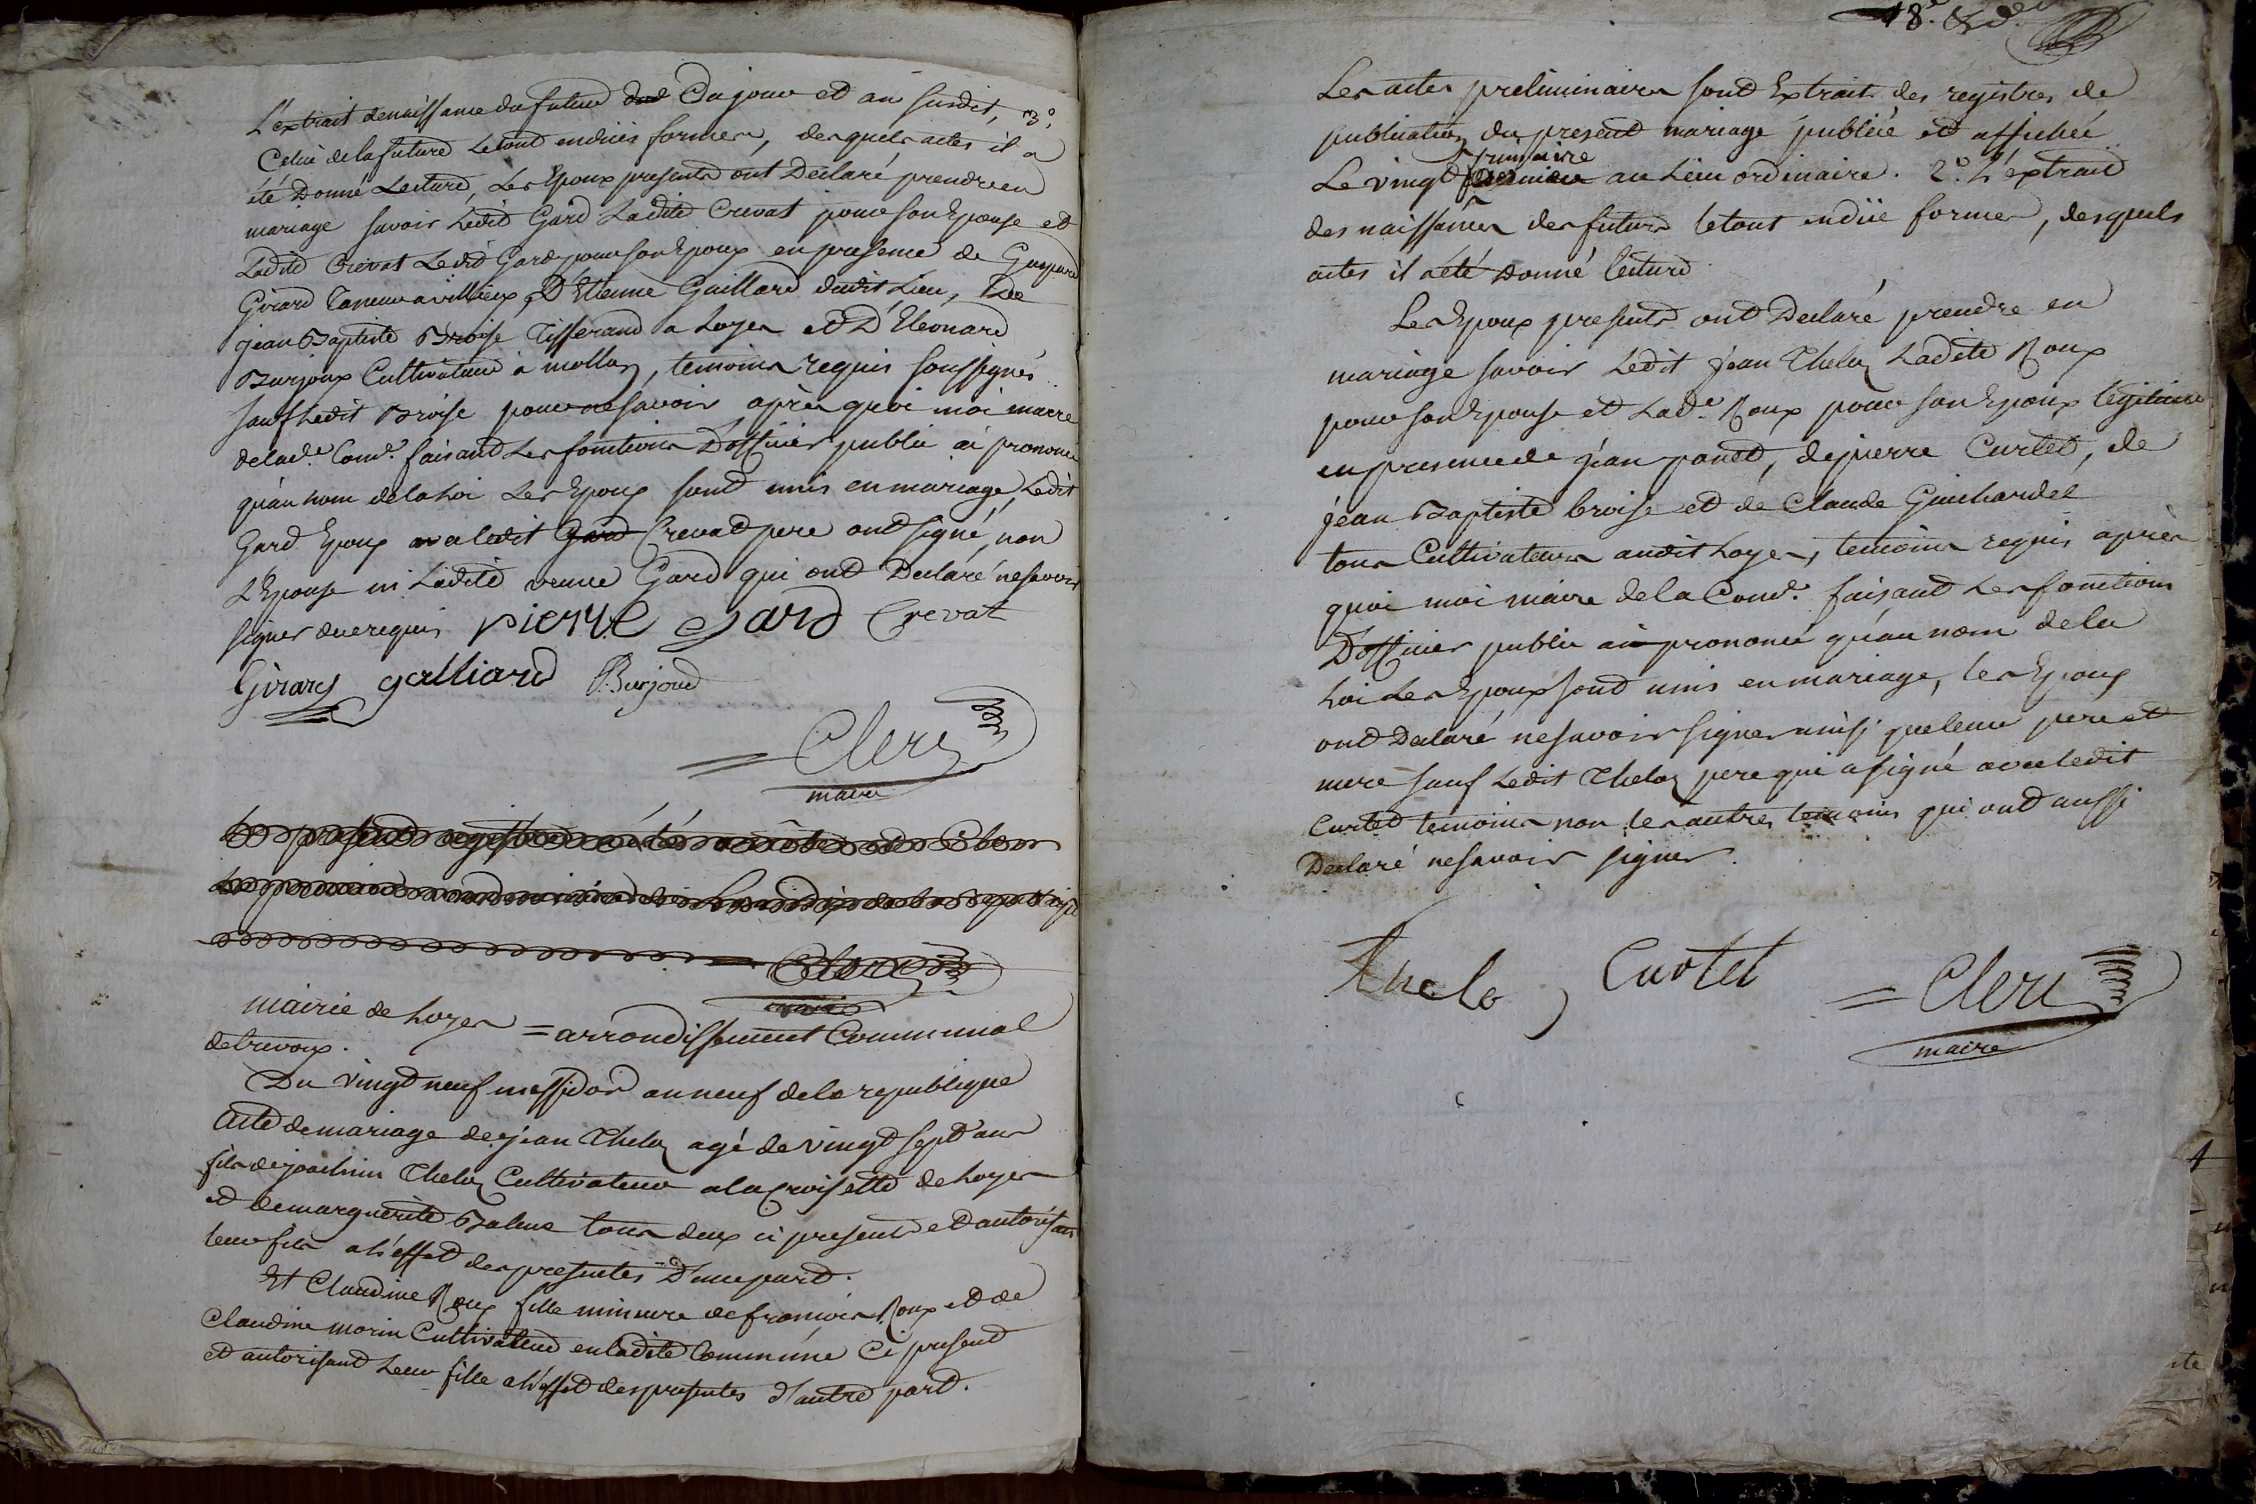 L'extrait denaissance du futur dud Du jour et an susdit, 3°.
Celui de la future Le tout endües formes, desquels actes il a
été Donné Lecture, Les Epoux presents ont Declaré prendre en
mariage savoir Ledit Gard Ladite Crevat pour son Epouse et
Ladite Crevat Ledit Gard pour son Epoux en presence de Gaspard
Girard Taneur a villieux, D'Etienne Gaillard dudit Lieu, De
jean Baptiste Broise Tisserand a Loyes et D'Eleonard
Burjoux Cultivateur à mollon, temoins requis soussignés
sauf Ledit Broise pour ne savoir après quoi moi maire
de lad.e Com.e faisant Les fonctions D'officier public ai prononcé
qu'au nom de la Loi Les Epoux sont unis en mariage, Ledit
Gard Epoux avec ledit Gard Crevat pere ont signé, non
L'Epouse ni Ladite veuve Gard qui ont Declaré ne savoir
signer de ce requis pierre gard Crevat
Girard galliard Burjoud
Clerc
maire
Le present registre a été
Clerc
maire
mairie de Loyes = arrondissement Communal
de trevoux.
Du vingt neuf messidor an neuf de la republique
Acte de mariage de jean Theloz agé de vingt sept ans
fils de joachim Theloz Cultivateur a la Croisette de Loyes
et de marguerite Balme tous deux ci presents et autorisant
leur fils a l'éffet des presentes D'une part.
Et Claudine Roux fille mineure de françois Roux et de
Claudine morin Cultivateur en Ladite Commune Ci present
et autorisant Leur fille a l'éffet des presentes d'autre part.
18.e
Les actes preliminaires sont Extrait des registres de
publication du present mariage publiée et affichée
primaire
Le vingt au Lieu ordinaire. 2.° L'éxtrait
des naissances des futurs le tout en düe formes, desquels
actes il a été Donné lecture
Les Epoux presents ont Declaré prendre en
mariage savoir Ledit jean Theloz Ladite Roux
pour son Epouse et Lad.e Roux pour son Epoux légitime
en presence de jéan ponct, de pierre Curtet, de
jéan Baptiste broise et de Claude Guichardet
tous Cultivateurs audit Loyes, temoins requis après
quoi moi maire de la Com.e faisant Les fonctions
D'officier public ai prononcé qu'au nom de la
Loi Les Epoux sont unis en mariage, les Epoux
ont Declaré ne savoir signer ainsi que leur pere et
mere sauf Ledit Theloz pere qui a signé avec ledit
Curtet temoins non les autres temoins qui ont aussi
Declaré ne savoir signer.
Theloz Curtet = Clerc
maire